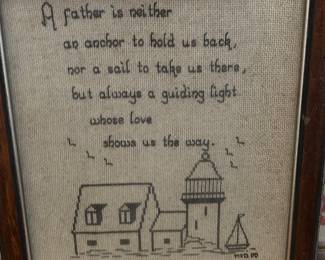 A father is neither
an anchor to hold us back,
nor a sail to take us there,
but always a guiding light
whose love
shows us the way.